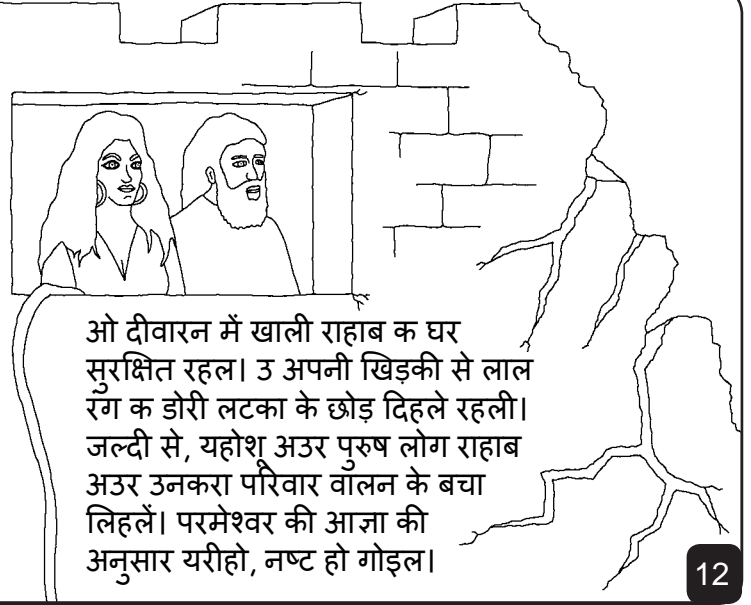 ओ दीवारन में खाली राहाब क घर
सुरक्षित रहल। उ अपनी खिड़की से लाल
रंग क डोरी लटका के छोड़ दिहले रहली।
जल्दी से, यहोशू अउर पुरुष लोग राहाब
अउर उनकरा परिवार वालन के बचा
लिहलें। परमेश्वर की आज्ञा की
अनुसार यरीहो, नष्ट हो गोइल।
12